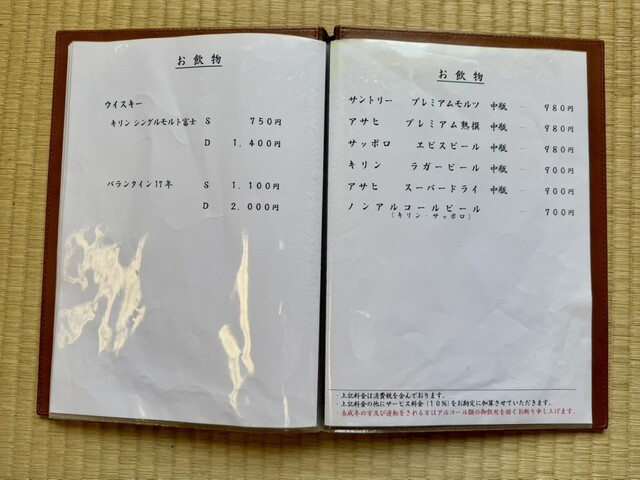 お飲物
ウイスキー
キリン シングルモルト富士 S 750円
D 1,400円
バランタイン 17年 S 1,100円
D 2,000円
お飲物
サントリー プレミアムモルツ 中瓶 — 980円
アサヒ プレミアム熟撰 中瓶 — 980円
サッポロ ヱビスビール 中瓶 — 980円
キリン ラガービール 中瓶 — 900円
アサヒ スーパードライ 中瓶 — 900円
ノンアルコールビール — 700円
(キリン・サッポロ)
・上記料金は消費税を含んでおります。
・上記料金の他にサービス料金(10%)をお勘定に加算させていただきます。
・未成年の方及び運転をされる方はアルコール類の御飲用を固くお断り申し上げます。